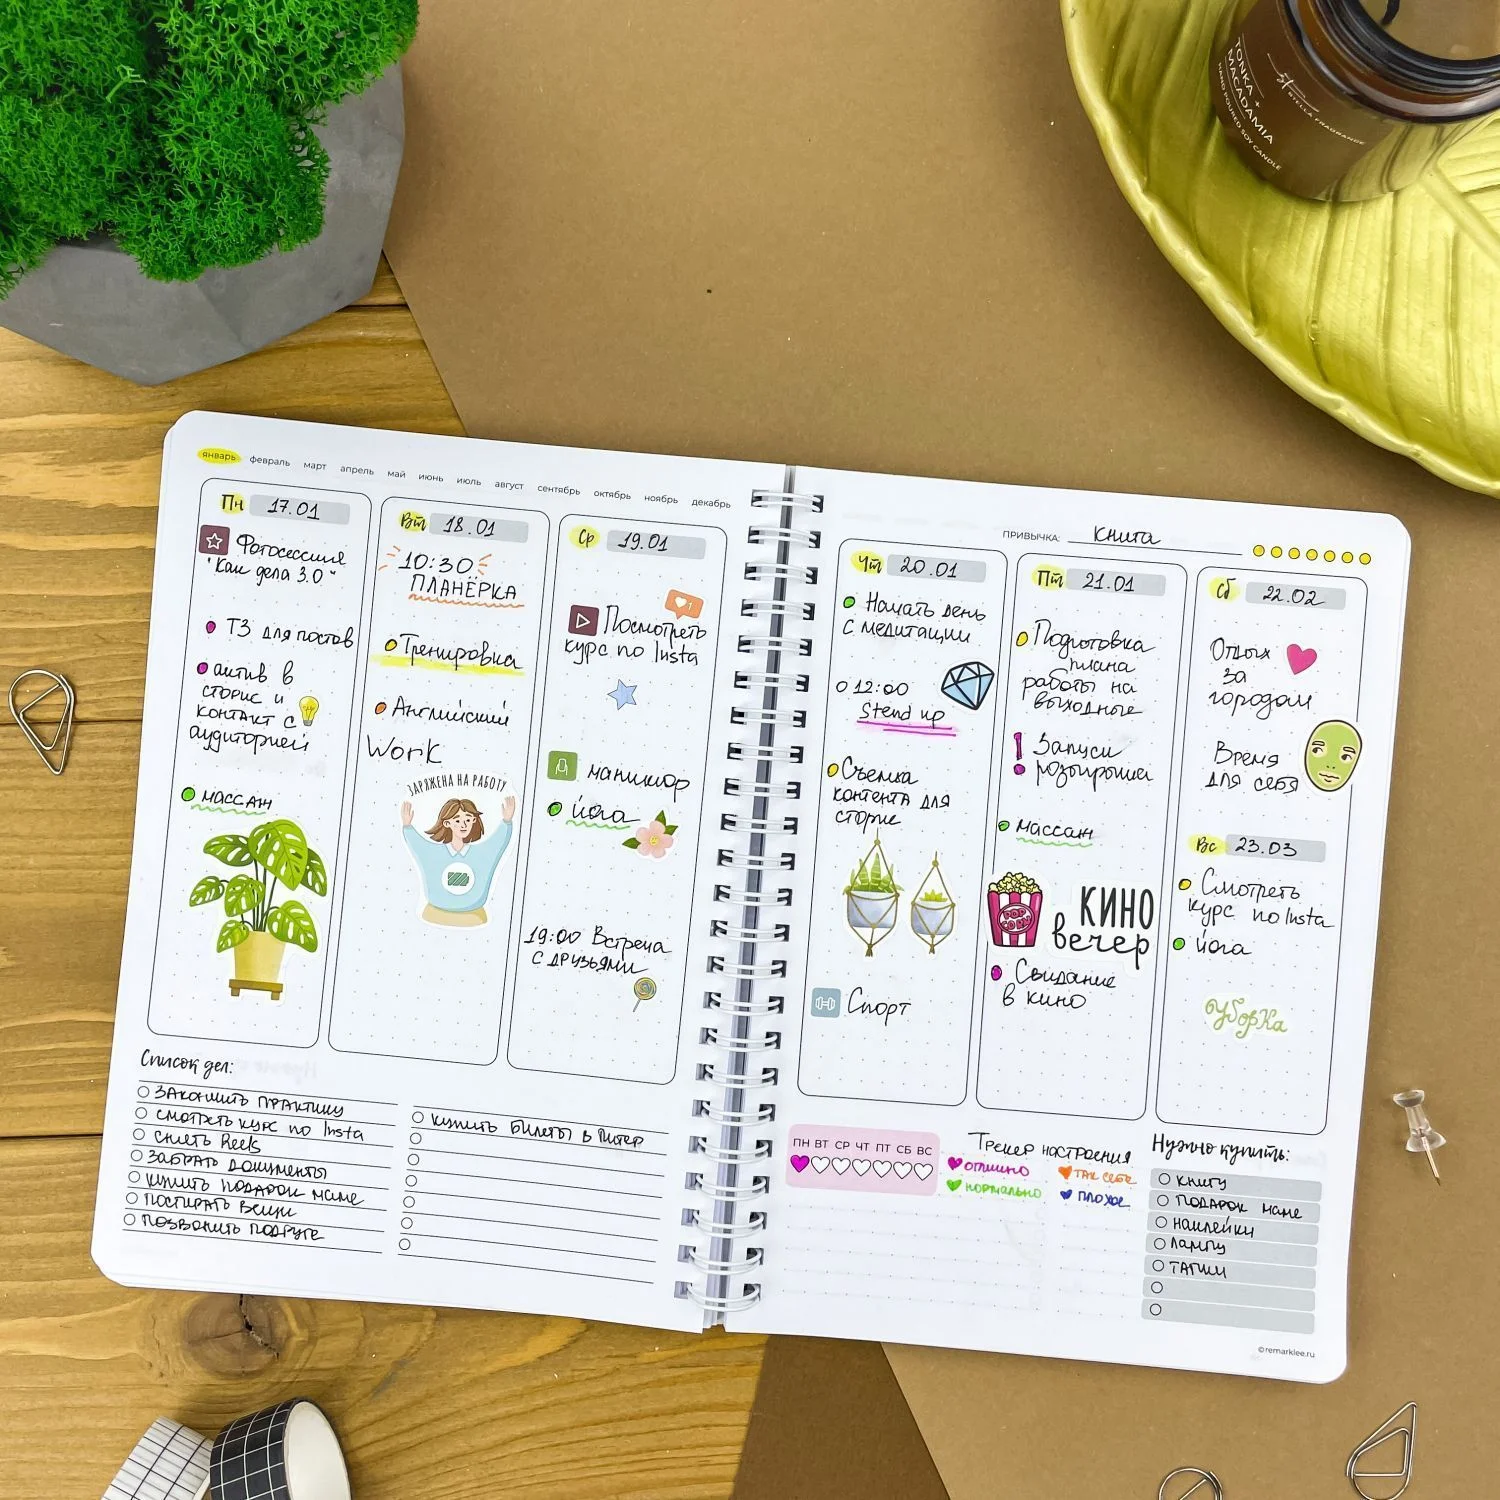 TONKA +
MACADAMIA
HAND POURED SOY CANDLE
STELLA FRAGRANCE
январь февраль март апрель май июнь июль август сентябрь октябрь ноябрь декабрь
Пн 17.01
Фотосессия
"Как дела 3.0"
ТЗ для постов
актив в
сторис и
контакт с
аудиторией
массаж
Вт 18.01
10:30
ПЛАНЁРКА
Тренировка
Английский
Work
ЗАРЯЖЕНА НА РАБОТУ
Ср 19.01
1
Посмотреть
курс по Insta
маникюр
йога
19:00 Встреча
с друзьями
Список дел:
Закончить практику
смотреть курс по Insta
снять Reels
Забрать документы
купить подарок маме
постирать вещи
позвонить подруге
купить билеты в Питер
ПРИВЫЧКА: книга
Чт 20.01
Начать день
с медитации
12:00
Stend up
Съемка
контента для
сторис
Спорт
Пт 21.01
Подготовка
плана
работы на
выходные
Запуск
розыгрыша
массаж
POP
CORN
КИНО
вечер
Свидание
в кино
Сб 22.02
Отдых
за
городом
Время
для себя
Вс 23.03
Смотреть
курс по Insta
йога
уборка
ПН ВТ СР ЧТ ПТ СБ ВС
Трекер настроения
отлично
так себе
нормально
плохое
Нужно купить:
книгу
подарок маме
наклейки
лампу
тапки
©remarklee.ru